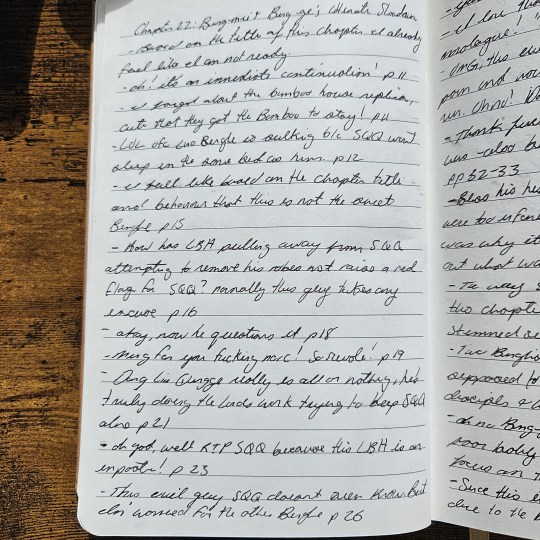 Chapter 22: Bing-mei & Bing-ge's Ultimate Showdown
- Based on the title of this chapter I already
feel like I am not ready.
- oh! it's an immediate continuation! p 11
- I forgot about the bamboo house replica,
cute that they got the Bamboo to stay! p 11
- LOL ofc Luo Binghe is sulking b/c SQQ won't
sleep in the same bed as him. p 12
- I feel like based on the chapter title
and behaviour that this is not the sweet
Binghe p 15
- How has LBH pulling away from SQQ
attempting to remove his robes not raise a red
flag for SQQ? normally this guy takes any
excuse p 16
- okay, now he questions it p 18
- Ming Fan you fucking narc! So rude! p 19
- Liu Qingge really is all or nothing, he's
truly doing the lords work trying to keep SQQ
alive p 21
- oh god, well RIP SQQ because this LBH is an
imposter! p 23
- This evil guy SQQ doesn't even know. But
I'm worried for the other Binghe p 26
monologue!
- OMG, this
porn and
run. Ohno!
- Thank
was also
pp 32-33
- Bless his
were too
was why it
out what was
- The way
this chapter
stunned
- Two Binghe
supposed to
disciple
- oh no Bing
poor baby
focus on
- Since this
due to the